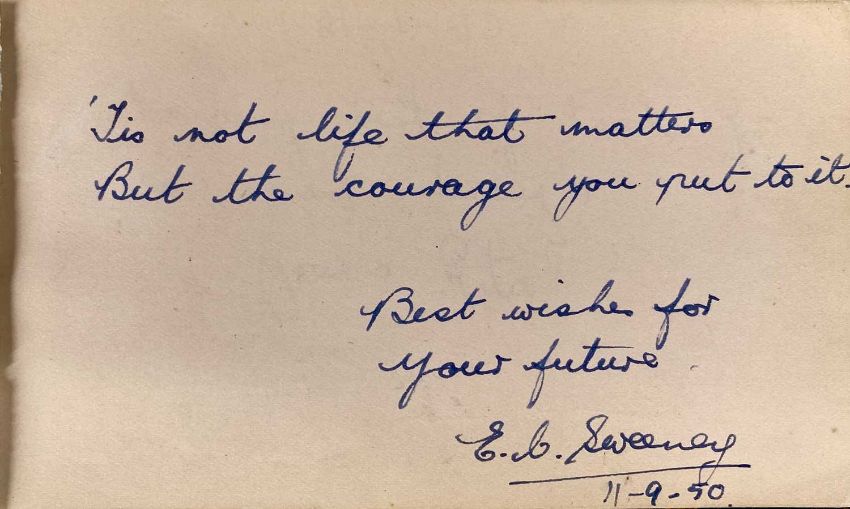 'Tis not life that matters
But the courage you put to it.
Best wishes for
your future.
E. C. Sweeney
11-9-50.